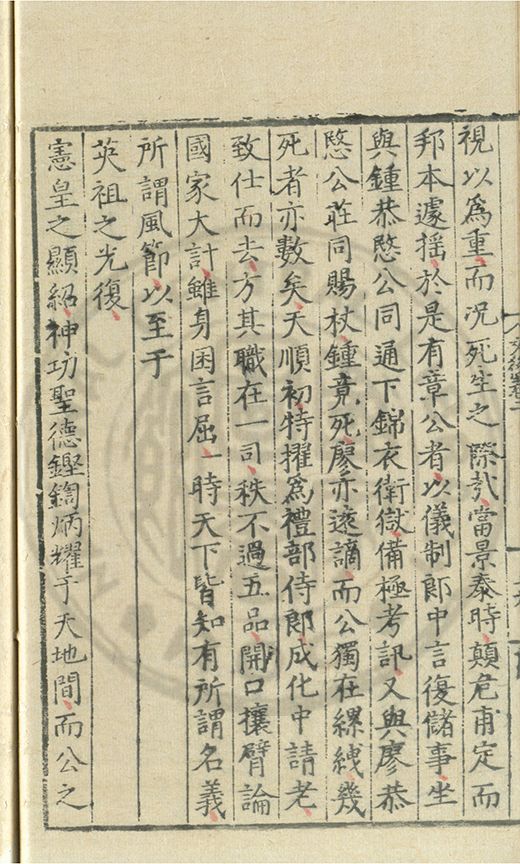 視以爲重而况死生之際㢤當景泰時顛危甫定而
邦本遽揺於是有章公者以儀制郎中言復儲事坐
與鍾恭愍公同逋下錦衣衛獄備極考訊又與廖恭
愍公莊同賜杖鍾竟死廖亦遠謫而公獨在縲絏幾
死者亦數矣天順初特擢爲禮部侍郎成化中請老
致仕而去方其職在一司秩不過五品開口攘臂論
國家大計雖身困言屈一時天下皆知有所謂名義
所謂風節以至于
英祖之光復
憲皇之顯紹神功聖德鏗鍧炳耀于天地間而公之